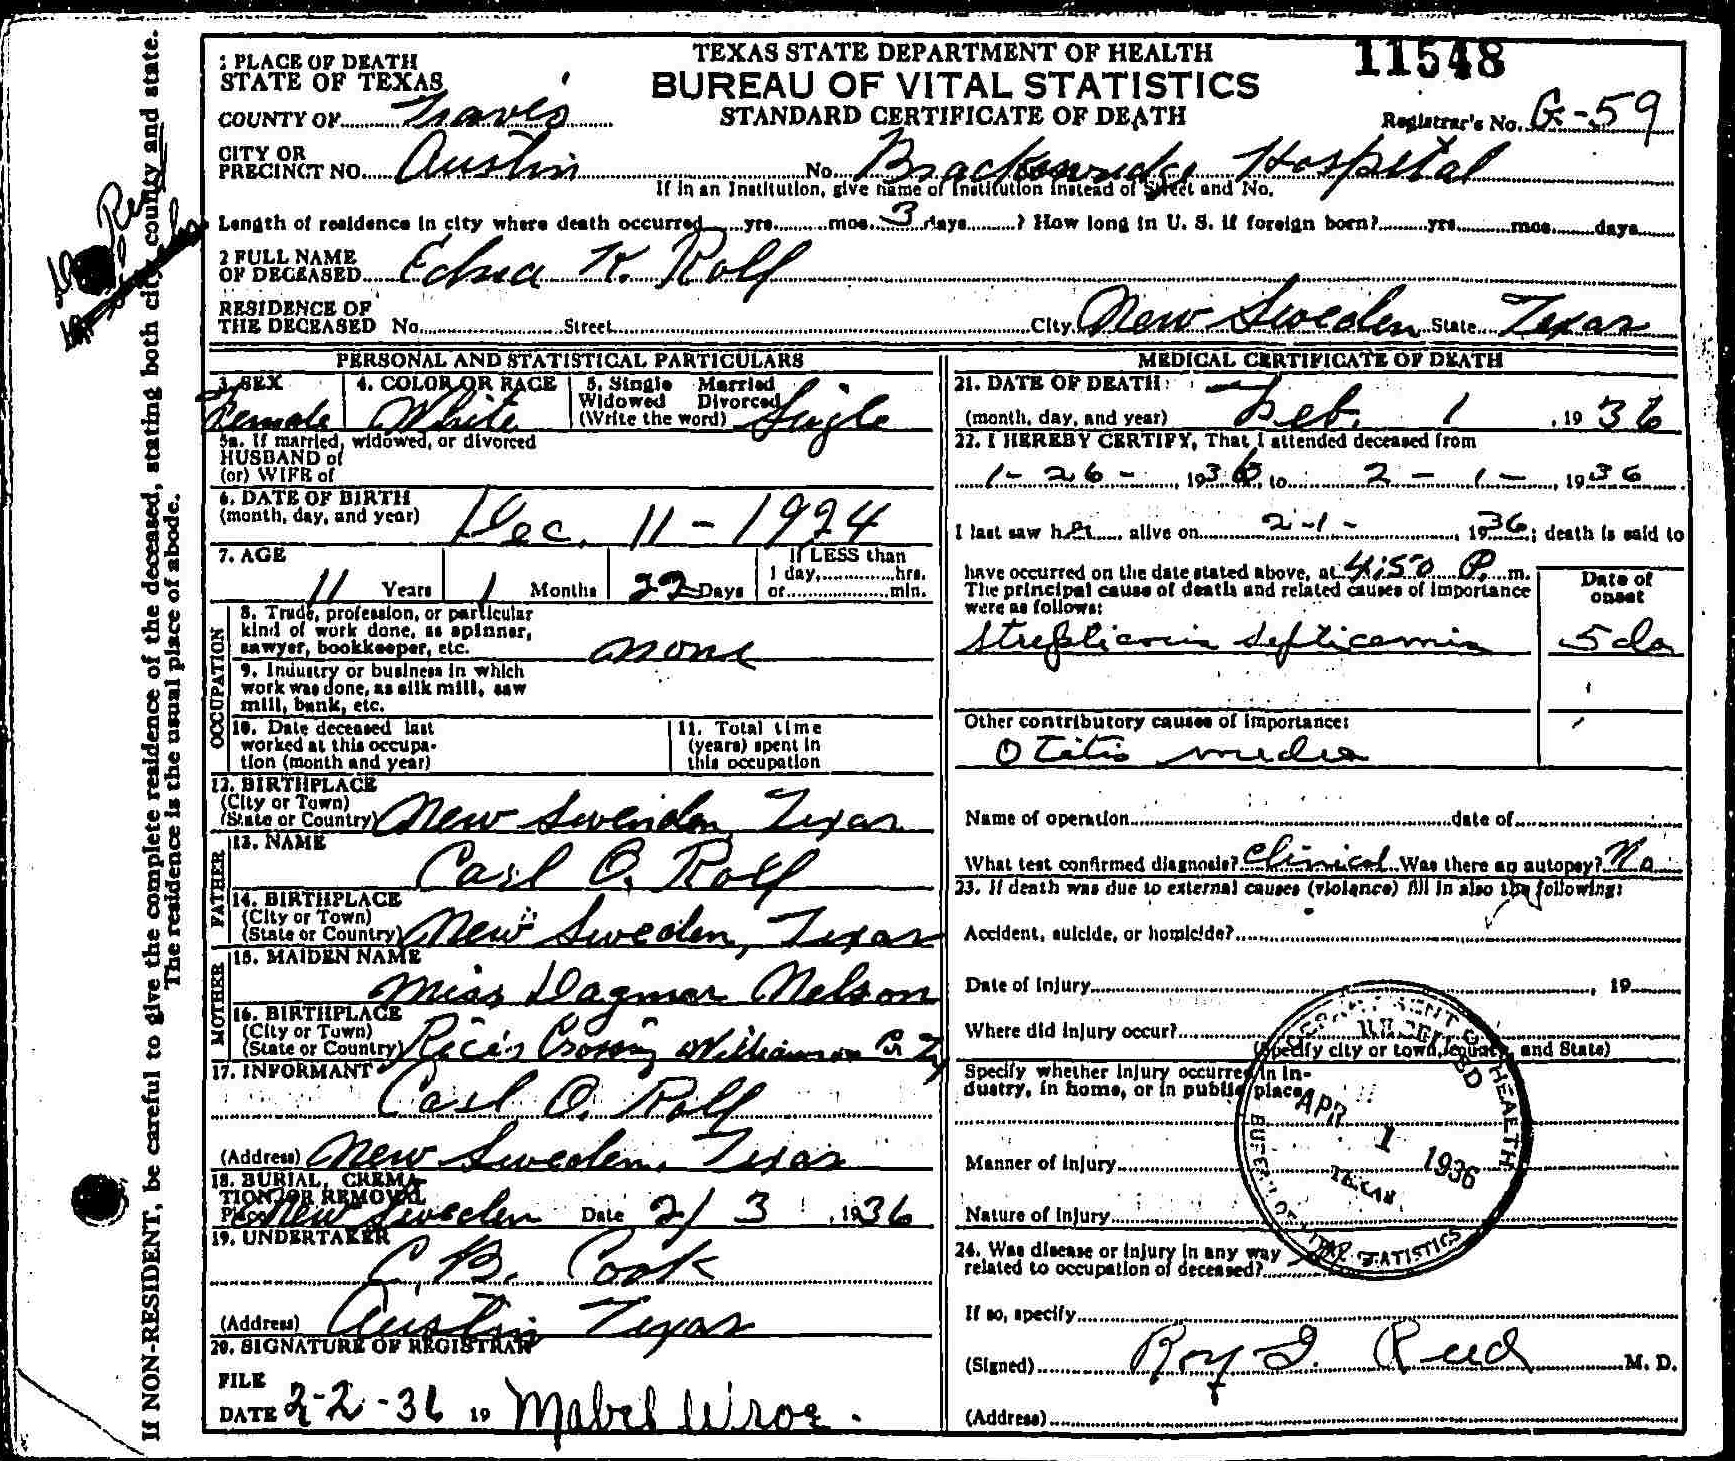 TEXAS STATE DEPARTMENT OF HEALTH
BUREAU OF VITAL STATISTICS
STANDARD CERTIFICATE OF DEATH
11548
Registrar's No. G-59
1 PLACE OF DEATH
STATE OF TEXAS
COUNTY OF Travis
CITY OR
PRECINCT NO. Austin No. Brackenridge Hospital
If in an Institution, give name of Institution instead of Street and No.
Length of residence in city where death occurred yrs. mos. 3 days ? How long in U. S. if foreign born? yrs. mos. days
2 FULL NAME
OF DECEASED Edna K. Rolf
RESIDENCE OF
THE DECEASED No. Street City New Sweden State Texas
PERSONAL AND STATISTICAL PARTICULARS
3. SEX
Female
4. COLOR OR RACE
White
5. Single Married
Widowed Divorced
(Write the word) Single
5a. If married, widowed, or divorced
HUSBAND of
(or) WIFE of
6. DATE OF BIRTH
(month, day, and year) Dec. 11 - 1924
7. AGE
11 Years 1 Months 22 Days
If LESS than
1 day, hrs.
or min.
OCCUPATION
8. Trade, profession, or particular
kind of work done, as spinner,
sawyer, bookkeeper, etc. none
9. Industry or business in which
work was done, as silk mill, saw
mill, bank, etc.
10. Date deceased last
worked at this occupa-
tion (month and year)
11. Total time
(years) spent in
this occupation
12. BIRTHPLACE
(City or Town)
(State or Country) New Sweiden, Texas
FATHER
13. NAME
Carl O. Rolf
14. BIRTHPLACE
(City or Town)
(State or Country) New Sweden, Texas
MOTHER
15. MAIDEN NAME
Miss Dagmar Nelson
16. BIRTHPLACE
(City or Town)
(State or Country) Rice's Crossing Williamson Co Tex
17. INFORMANT
Carl O. Rolf
(Address) New Sweden, Texas
18. BURIAL, CREMA-
TION OR REMOVAL
Place New Sweden Date 2/ 3, 1936
19. UNDERTAKER
C. B. Cook
(Address) Austin Texas
20. SIGNATURE OF REGISTRAR
FILE
DATE 2-2-36 19 Mabel Wroe.
MEDICAL CERTIFICATE OF DEATH
21. DATE OF DEATH:
(month, day, and year) Feb. 1, 1936
22. I HEREBY CERTIFY, That I attended deceased from
1-26-, 1936, to 2-1-, 1936
I last saw her alive on 2-1-, 1936; death is said to
have occurred on the date stated above, at 4:50 P. m.
The principal cause of death and related causes of importance
were as follows:
Date of
onset
septicemia 5 da
Other contributory causes of importance:
Otitis media
Name of operation date of
What test confirmed diagnosis? Clinical Was there an autopsy? No
23. If death was due to external causes (violence) fill in also the following:
Accident, suicide, or homicide?
Date of injury , 19
Where did injury occur?
(Specify city or town, county, and State)
Specify whether injury occurred in in-
dustry, in home, or in public place
Manner of injury
Nature of injury
24. Was disease or injury in any way
related to occupation of deceased?
If so, specify
(Signed) Roy G. Reed M. D.
(Address)
RECEIVED
APR 1 1936
TEXAS
BUREAU OF VITAL STATISTICS
If NON-RESIDENT, be careful to give the complete residence of the deceased, stating both city, county and state.
The residence is the usual place of abode.